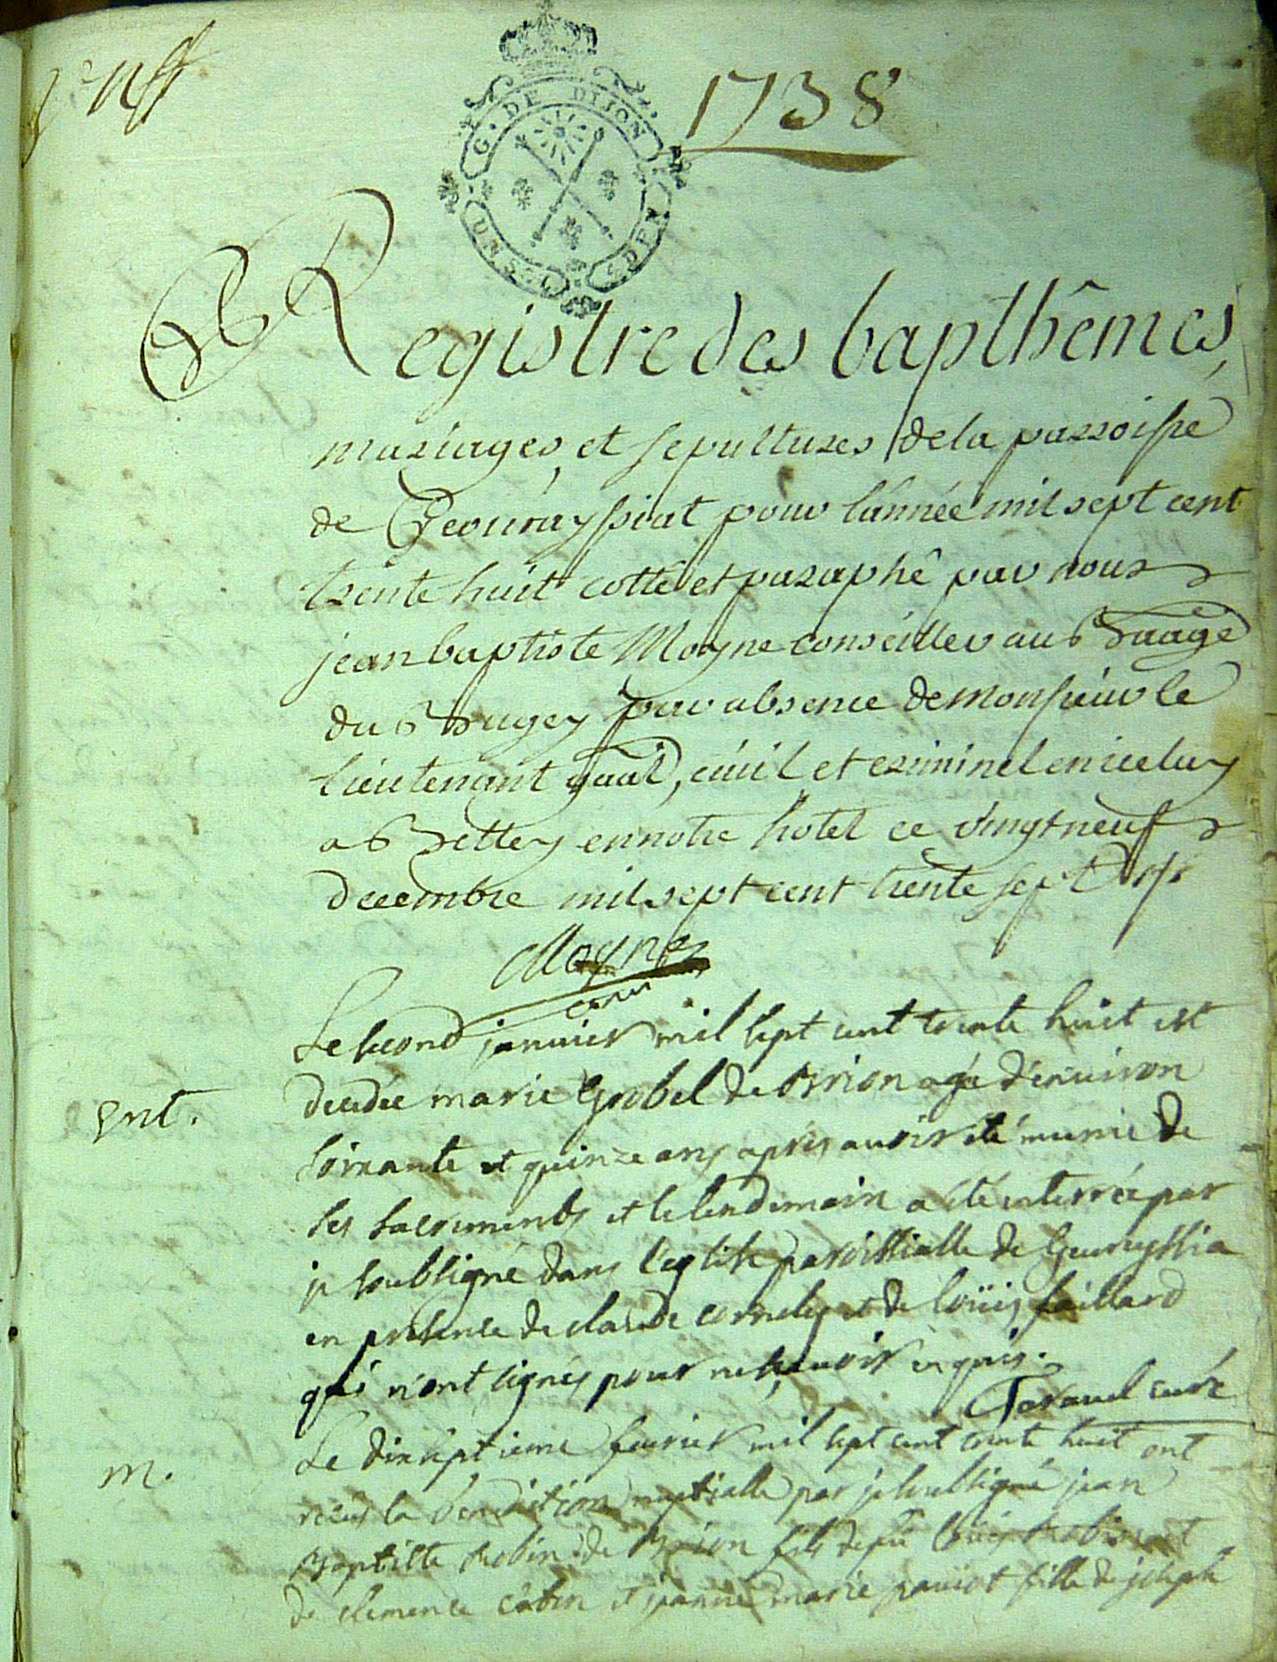 1738
G. DE DIJON
Registre des bapthêmes,
mariages, et sepultures de la parroisse
de Geourayssiat pour l'année mil sept cent
trente huit cotté et paraphé par nous
jean baptiste Moyne conseiller au Baage
du Bugey par absence de Monsieur le
Lieutenant gnal, civil et criminel en iceluy
a Belley en notre hotel ce vingt neuf
decembre mil sept cent trente sept
Moyne
Le second janvier mil sept cent trente huit est
Ent.
decedée marie Grobel de Brion agée d'environ
soixante et quinze ans apres avoir eté munie de
ses sacrements et le lendemain a été enterrée par
je soubsigné dans l'eglise paroissialle de Geuruyssia
en presence de claude cornely et de loüis faillard
qui n'ont signés pour ne sçavoir enquis.
Savauel curé
m.
Le dixseptieme fevrier mil sept cent trente huit ont
reçus la benediction nuptialle par je soubsigné jean
Baptiste Robin de Brion fils de fû loüis Robin et
de clemence cabin et jeanne marie paviot fille de joseph